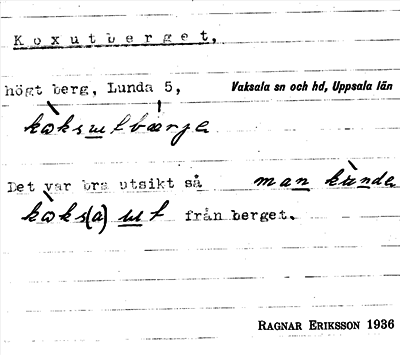 Koxutberget,
högt berg, Lunda 5, Vaksala sn och hd, Uppsala län
kὼksutbærjɛ
Det var bra utsikt så man kùnde
kὼks(a) ut från berget.
RAGNAR ERIKSSON 1936